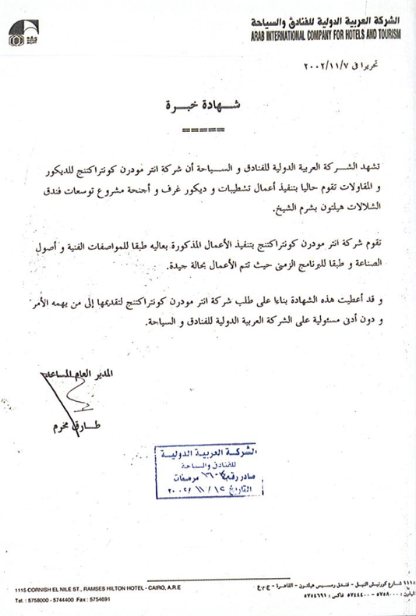 الشركة العربية الدولية للفنادق والسياحة
ARAB INTERNATIONAL COMPANY FOR HOTELS AND TOURISM
تحريرا فى ٢٠٠٢/١١/٧
شهادة خبرة
=====
تشهد الشركة العربية الدولية للفنادق و السياحة أن شركة انتر مودرن كونتراكتنج للديكور
و المقاولات تقوم حاليا بتنفيذ أعمال تشطيبات و ديكور غرف و أجنحة مشروع توسعات فندق
الشلالات هيلتون بشرم الشيخ.
تقوم شركة انتر مودرن كونتراكتنج بتنفيذ الأعمال المذكورة بعاليه طبقا للمواصفات الفنية و أصول
الصناعة و طبقا للبرنامج الزمنى حيث تتم الأعمال بحالة جيدة.
و قد أعطيت هذه الشهادة بناءا على طلب شركة انتر مودرن كونتراكتنج لتقديمها إلى من يهمه الأمر
و دون أدنى مسئولية على الشركة العربية الدولية للفنادق و السياحة.
المدير العام المساعد
طارق مخرم
الشركة العربية الدولية
للفنادق والسياحة
صادر رقم
التاريخ ٢٠٠٢/١١/١٢
١١١٥ شارع كورنيش النيل - فندق رمسيس هيلتون - القاهرة - ج.م.ع
1115 CORNISH EL NILE ST., RAMSES HILTON HOTEL - CAIRO, A.R.E
٥٧٥٨٠٠٠ - ٥٧٤٤٤٠٠ فاكس : ٥٧٥٤٦٩١
Tel. : 5758000 - 5744400 Fax : 5754691